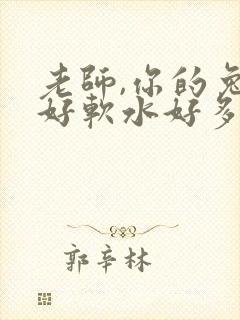 老師,你的兔
好軟水好多
郭辛林